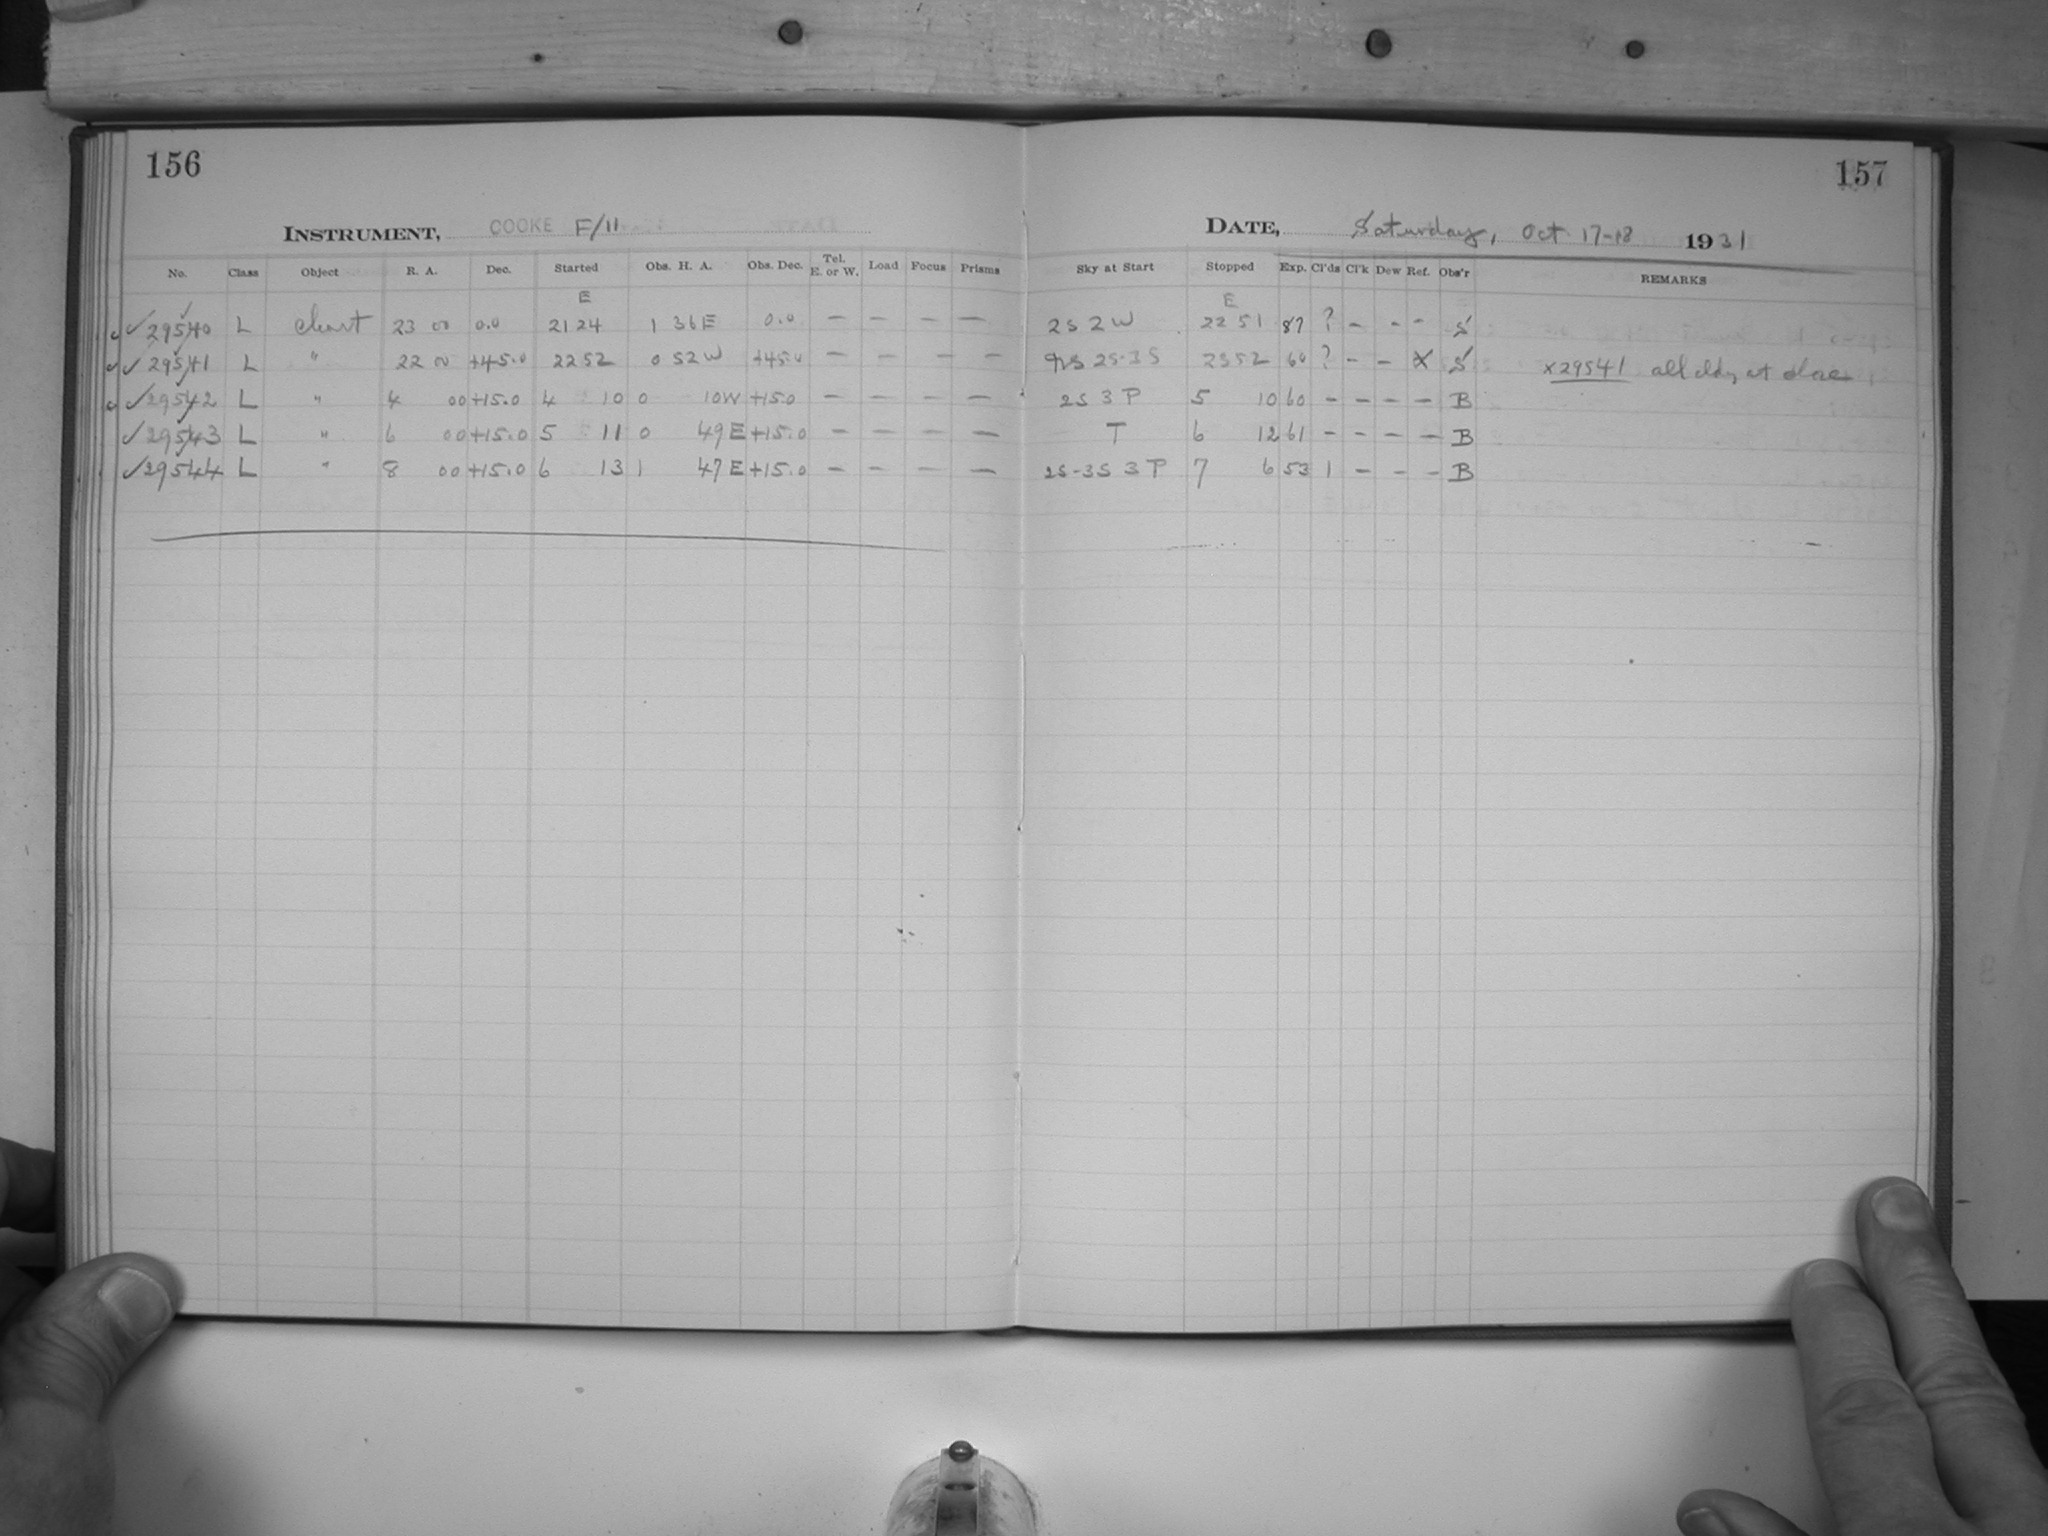 156
157
INSTRUMENT, COOKE F/11
DATE, Saturday, Oct 17-18 1931
No. Class Object R. A. Dec. Started Obs. H. A. Obs. Dec. Tel. E. or W. Load Focus Prisms Sky at Start Stopped Exp. Cl'ds Cl'k Dew Ref. Obs'r REMARKS
E E
✓ 29540 L chart 23 00 0.0 21 24 1 36 E 0.0 — — — — 2S 2W 22 51 87 ? - - - S
✓ 29541 L " 22 00 +45.0 22 52 0 52 W +45.0 — — — — 2S-3S 23 52 60 ? - - X S x29541 all cldy at close
✓ 29542 L " 4 00 +15.0 4 10 0 10 W +15.0 — — — — 2S 3 P 5 10 60 - - - - B
✓ 29543 L " 6 00 +15.0 5 11 0 49 E +15.0 — — — — T 6 12 61 - - - - B
✓ 29544 L " 8 00 +15.0 6 13 1 47 E +15.0 — — — — 2S-3S 3 P 7 6 53 1 - - - B